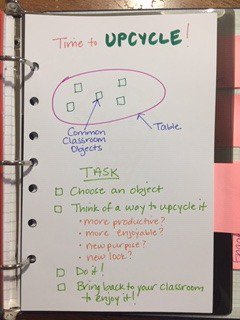 Time to UPCYCLE!
Common
Classroom
Objects
Table
TASK
Choose an object
Think of a way to upcycle it
• more productive?
• more enjoyable?
• new purpose?
• new look?
Do it!
Bring back to your classroom
to enjoy it!